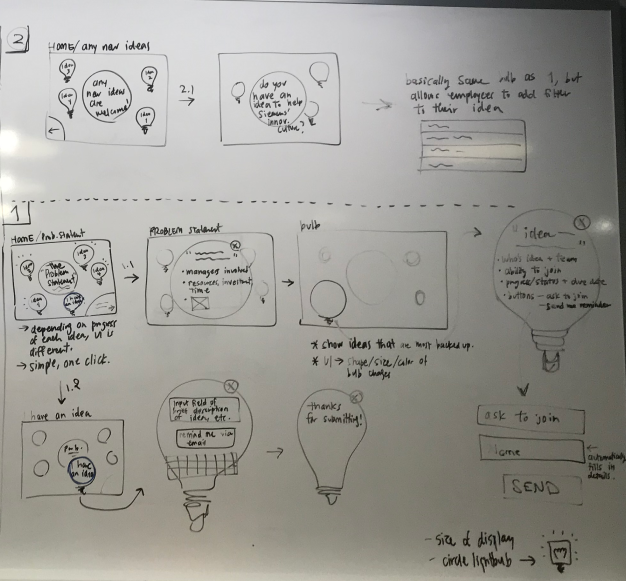 2
HOME/any new ideas
idea 3
idea 2
any
new ideas
are
welcome!
idea 1
2.1
do you
have an
idea to help
Siemens'
innov.
culture?
basically same as 1, but
allows employees to add filter
to their idea
1
HOME/Prob. Statement
the
Problem
Statement
I have
an idea
1.1
→ depending on progress
of each idea, UI is
different.
→ simple, one click.
1.2
PROBLEM Statement
x
• managers involved
• resources, investment,
time
bulb
* show ideas that are most backed up.
* UI → shape/size/color of
bulb changes
x
"idea
• who's idea + team
• ability to join
• progress/status + due date
• buttons — ask to join
— send me reminder
ask to join
Name
← automatically
fills in
details.
SEND
I have an idea
Prob.
I have
an idea
x
input field of
brief description
of idea, etc.
remind me via
email
x
thanks
for submitting!
- size of display
- circle lightbulb →